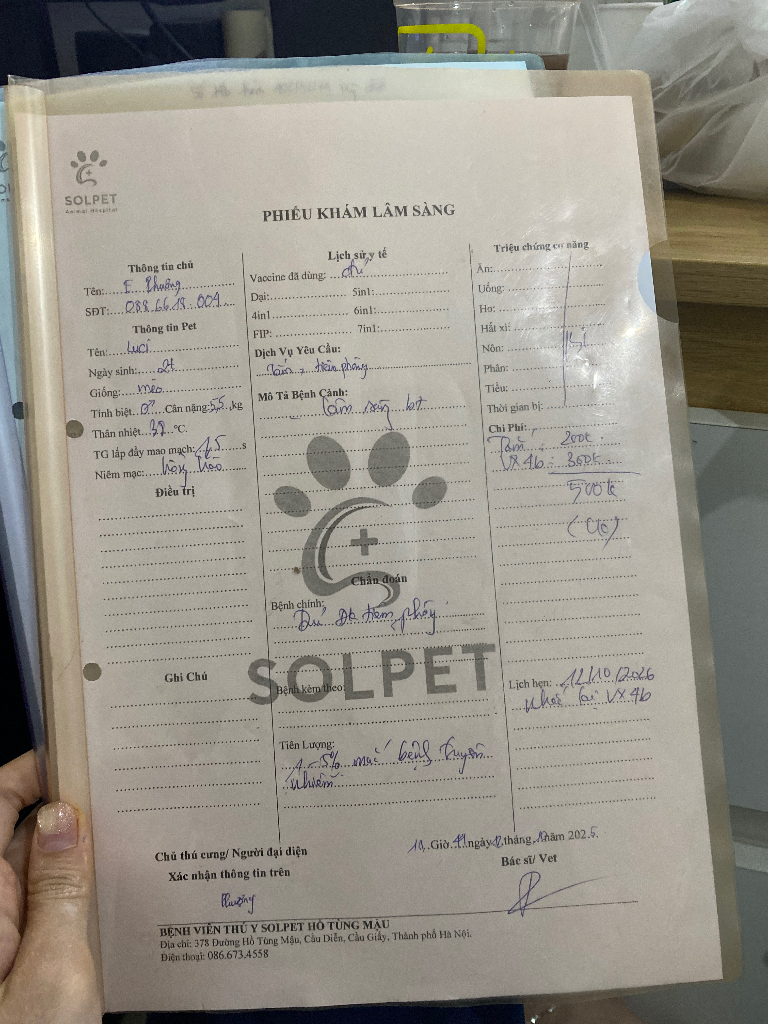 SOLPET
Animal Hospital
PHIẾU KHÁM LÂM SÀNG
Thông tin chủ
Tên: E. Phường
SĐT: 088 66 18 004
Thông tin Pet
Tên: Luci
Ngày sinh: 2t
Giống: mèo
Tính biệt ♂ Cân nặng: 5,5 kg
Thân nhiệt 38 °C.
TG lấp đầy mao mạch: 1,5 s
Niêm mạc: hồng hào
Điều trị
Ghi Chú
Lịch sử y tế
Vaccine đã dùng: đủ
Dại: 5in1:
4in1 6in1:
FIP: 7in1:
Dịch Vụ Yêu Cầu:
Tắm, tiêm phòng
Mô Tả Bệnh Cảnh:
Lâm sàng bt
Chẩn đoán
Bệnh chính:
Đủ Đk tiêm phòng
SOLPET
Bệnh kèm theo:
Tiên Lượng:
1-5% mắc bệnh truyền
nhiễm
Triệu chứng cơ năng
Ăn:
Uống:
Ho:
Hắt xì:
Nôn:
Phân:
Tiểu:
Thời gian bị:
Chi Phí:
Tắm: 200k
VX 4b: 300k
500k
Lịch hẹn: 12/10/2026
nhắc lại VX 4b
Chủ thú cưng/ Người đại diện
Xác nhận thông tin trên
Phường
Giờ ngày tháng năm 2025
Bác sĩ/ Vet
BỆNH VIỆN THÚ Y SOLPET HỒ TÙNG MẬU
Địa chỉ: 378 Đường Hồ Tùng Mậu, Cầu Diễn, Cầu Giấy, Thành phố Hà Nội.
Điện thoại: 086.673.4558